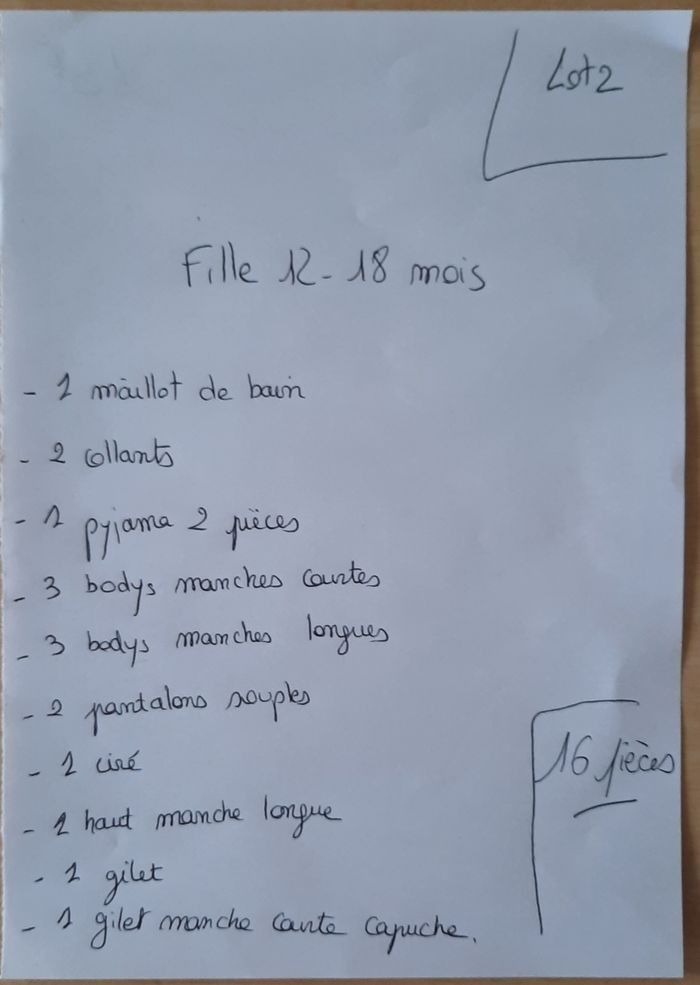 Lot 2
Fille 12-18 mois
- 1 maillot de bain
- 2 collants
- 1 pyjama 2 pièces
- 3 bodys manches courtes
- 3 bodys manches longues
- 2 pantalons souples
- 1 ciré
- 1 haut manche longue
- 1 gilet
- 1 gilet manche courte capuche.
16 pièces